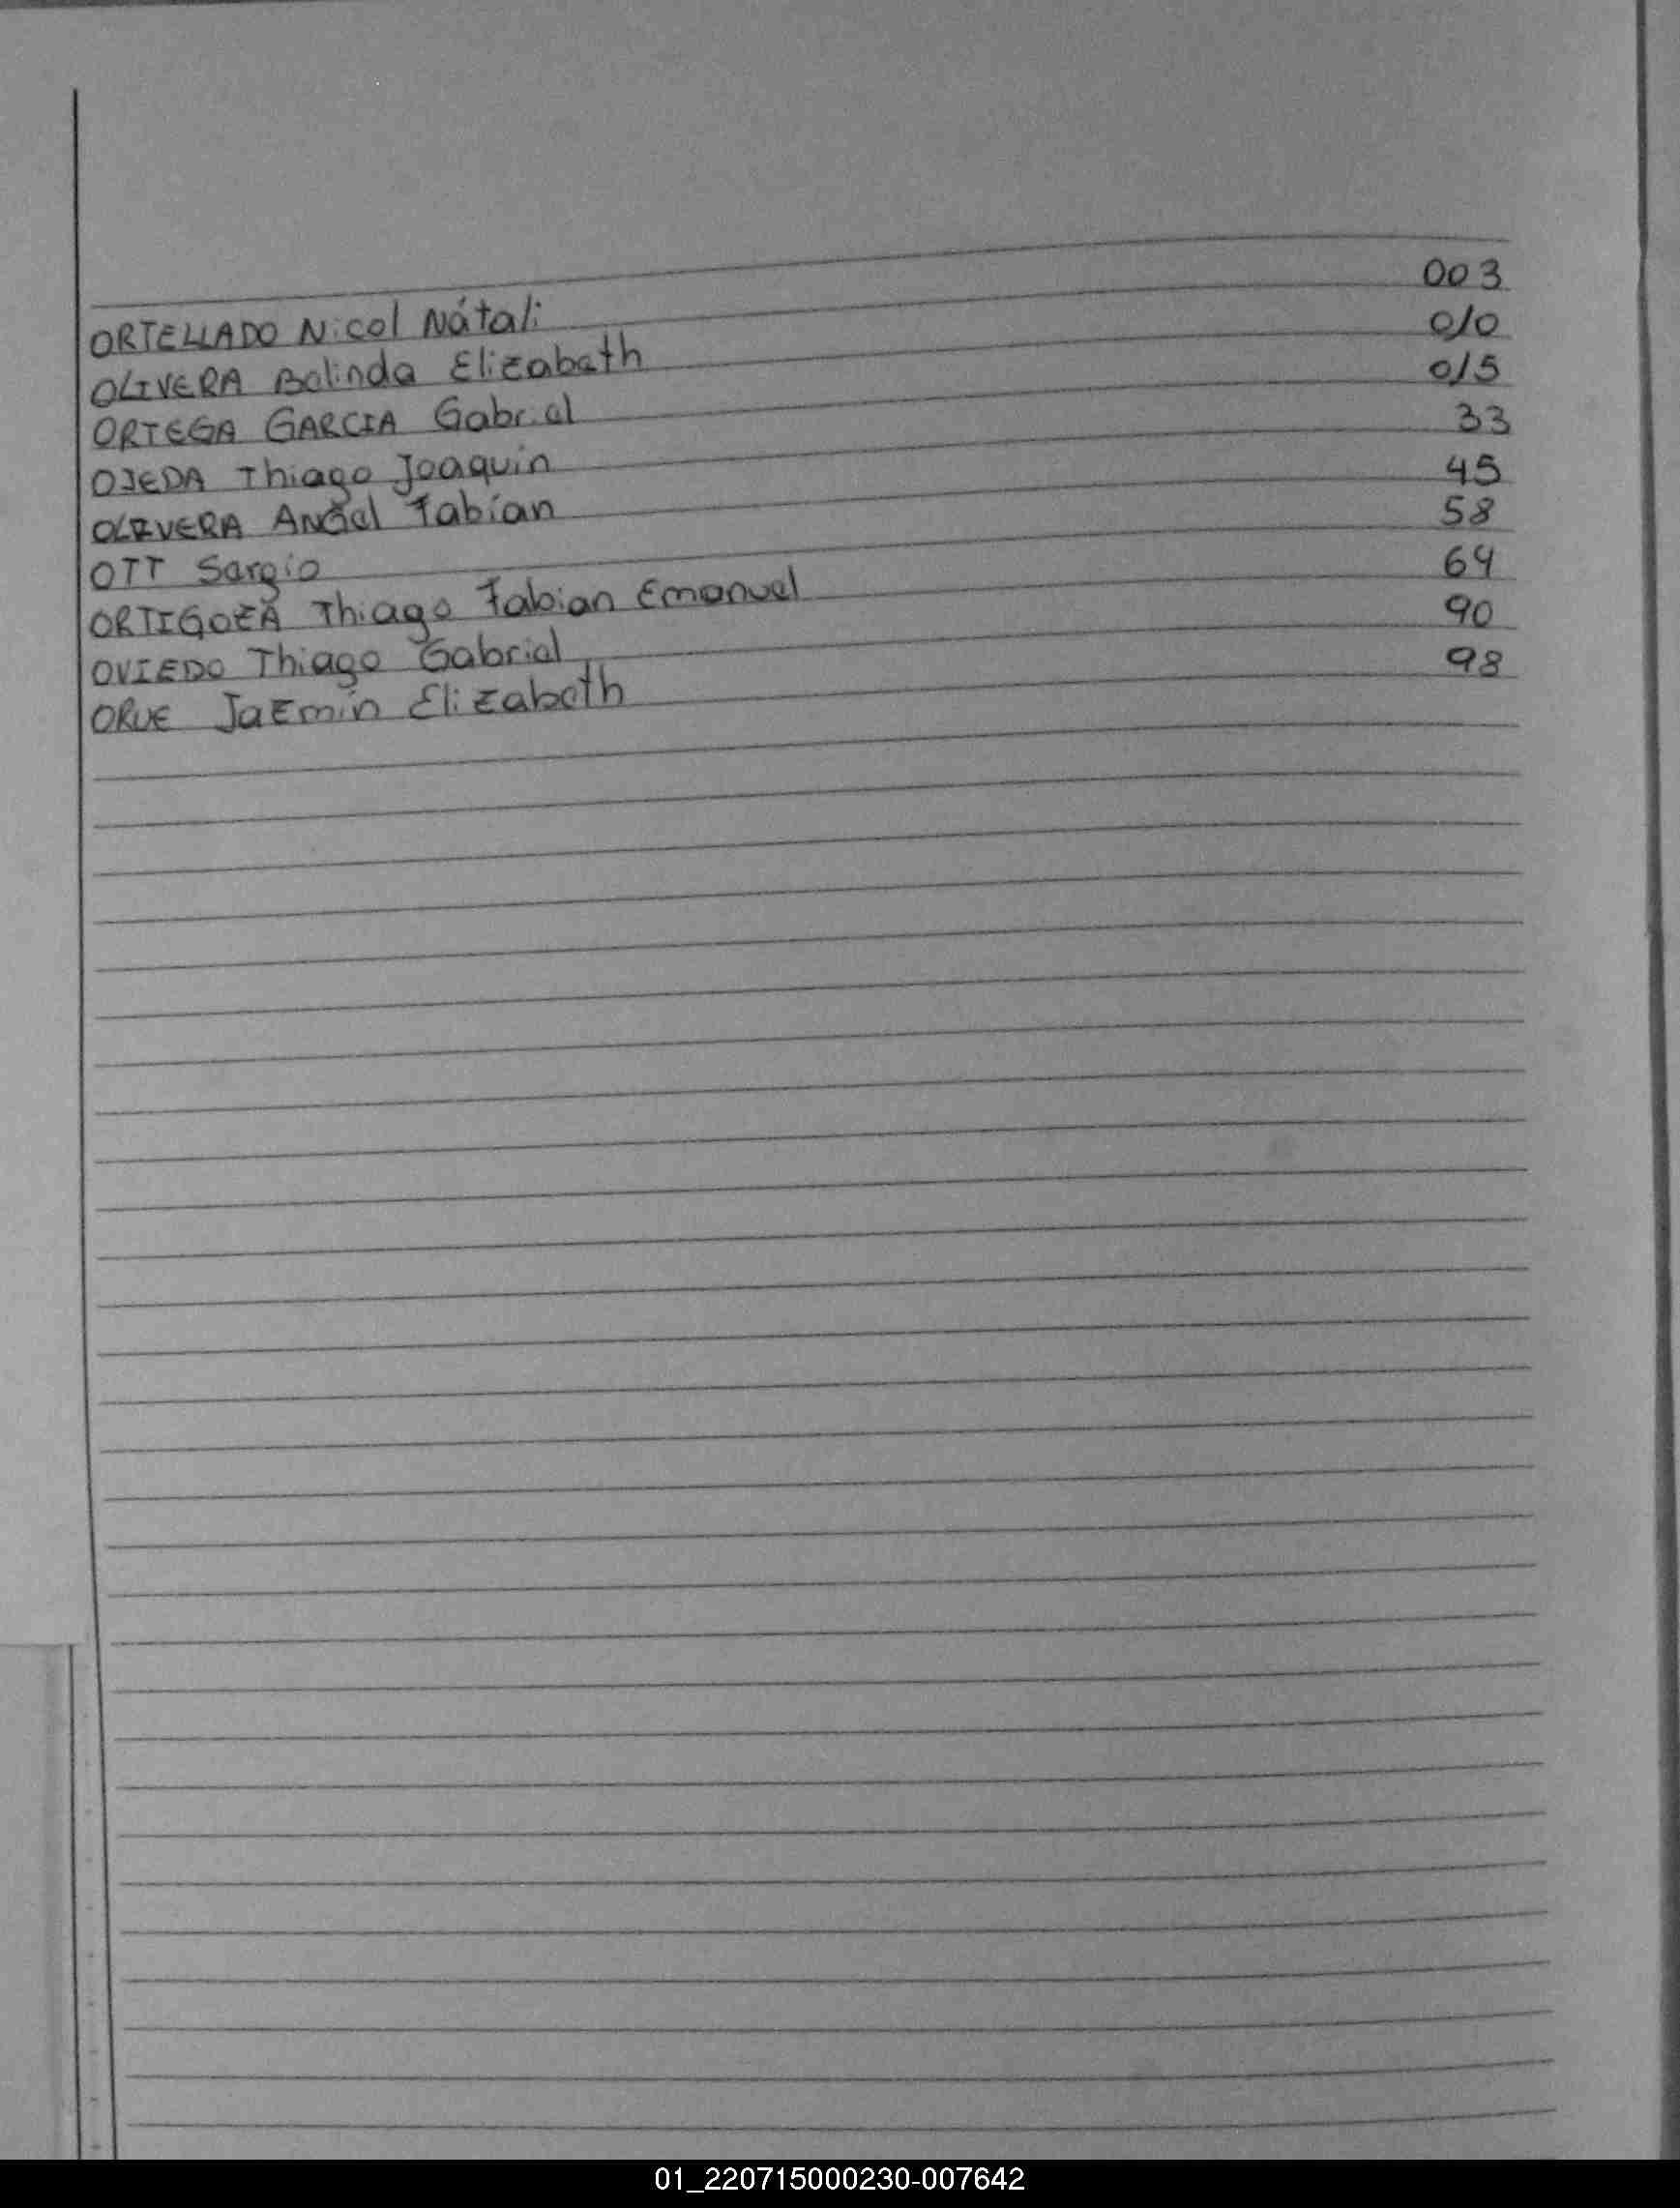 ORTELLADO Nicol Nátali 003
OLIVERA Belinda Elizabeth 010
ORTEGA GARCIA Gabriel 015
OJEDA Thiago Joaquin 33
OLIVERA Angel Fabían 45
OTT Sergio 58
ORTIGOZA Thiago Fabian Emanuel 64
OVIEDO Thiago Gabriel 90
ORUE Jazmín Elizabeth 98
01_220715000230-007642